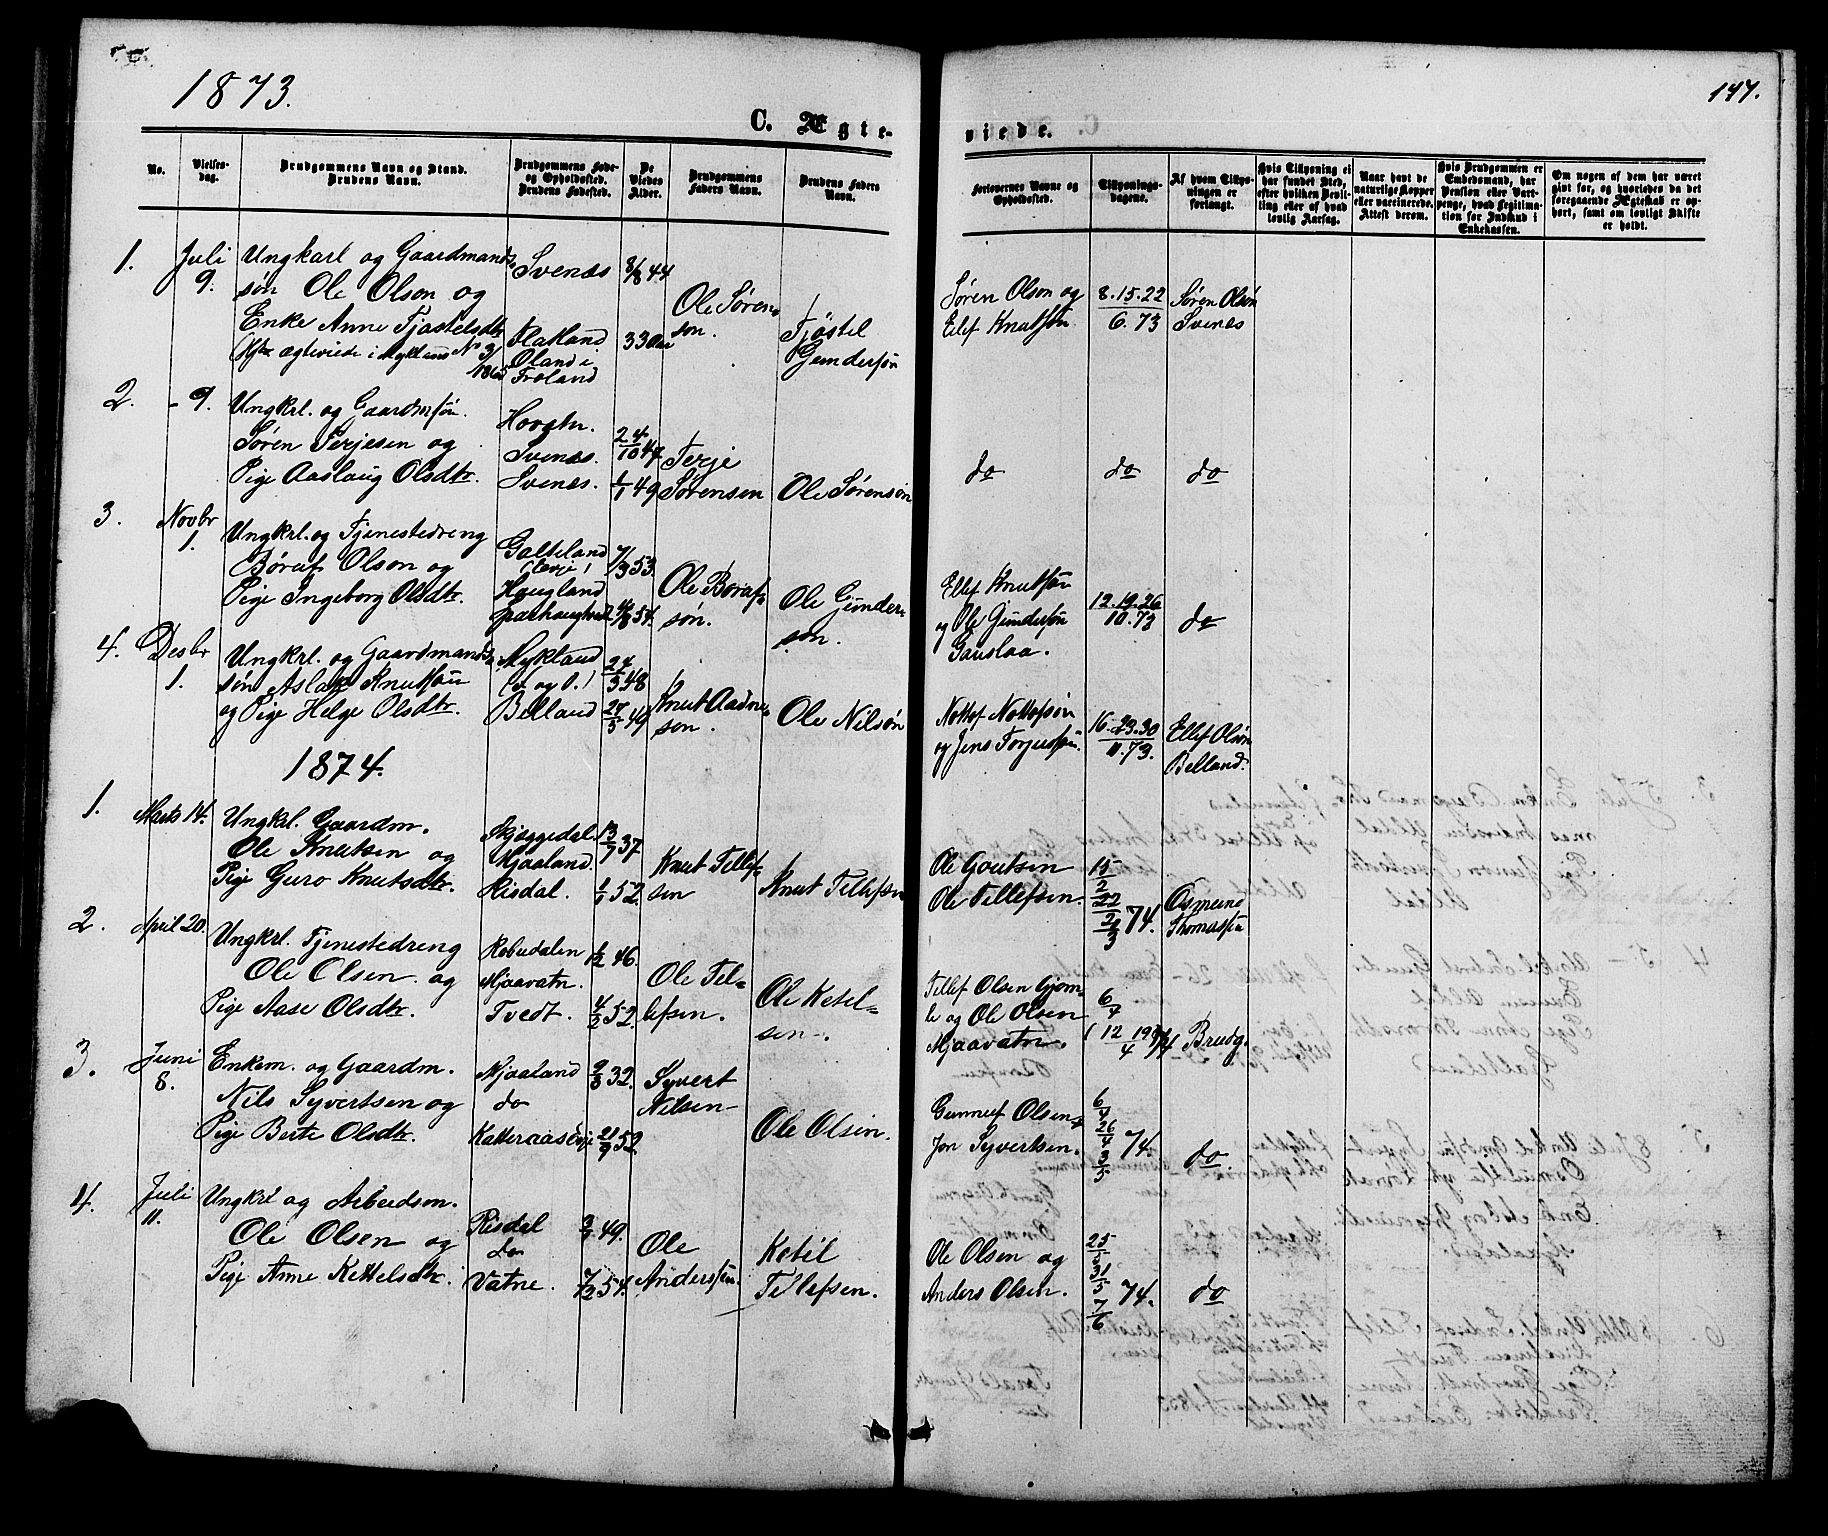 1873.
147.
C. Ægte-
viede.
No.
Vielses-
dag.
Brudgommens Navn og Stand.
Brudens Navn.
Brudgommens Føde-
og Opholdssted.
Brudens Fødested.
De
Viedes
Alder.
Brudgommens
Faders Navn.
Brudens Faders
Navn.
Forlovernes Navne og
Opholdssted.
Tillysnings-
dagene.
Af hvem Tillys-
ningen er
forlangt.
Hvis Tillysning ei
har fundet Sted,
efter hvilken Bevil-
ling eller af hvad
lovlig Aarsag.
Naar havt de
naturlige Kopper
eller vaccinerede.
Attest derom.
Hvis Brudgommen er
Embedsmand, har
Pension eller Vart-
penge, hvad Legitima-
tion for Indskud i
Enkekassen.
Om nogen af dem har været
givt før, og hvorledes da det
foregaaende Ægteskab er op-
hørt, samt om lovligt Skifte
er holdt.
1. Juli 9.
Ungkarl og Gaardmands-
søn Ole Olson og
Enke Anne Tjøstelsdtr
ægteviede i Mykland No 3/
Svenæs
Flatland
Oland i
Froland
8/8 44
33 Aar
Ole Søren-
son.
Tjøstel
Gundersøn
Søren Olson og
Eilef Knutsøn.
8.15.22
6.73
Søren Olsøn
Svenes
2. - 9.
Ungkrl. og Gaardmsøn.
Søren Terjesen og
Pige Aaslaug Olsdtr.
Svenæs.
Svenes.
24/10 47
1/1 49
Terje
Sørensen
Ole Sørensøn
do do do
3. Novbr 1.
Ungkrl. og Tjenestedreng
Børuf Olson og
Pige Ingeborg Olsdtr.
Galteland
(Evje)
Hougland
7/3 53.
54.
Ole Boruf-
søn.
Ole Gunder-
søn.
Ellef Knutsøn
og Ole Gundersøn
Gauslaa.
12.19.26
10.73
do
4. Desbr 1.
Ungkrl. og Gaardmands-
søn Aslak Knutsøn
og Pige Helge Olsdtr.
Mykland
(F. og O.)
Belland
27/5 48
27/5 49
Knut Aadne-
sen.
Ole Nilsøn
Nottof Nottofsøn
og Jens Torjussøn.
16.23.30
11.73.
Ellef Olsøn
Belland.
1874.
1. Marts 14.
Ungkrl. Gaardm.
Ole Knutsen og
Pige Guro Knutsdtr.
Skjeggedal.
Mjaaland.
Risdal.
13/7 37
1/1 52.
Knut Tellef-
sen
Knut Tellefsen
Ole Goutsen
Ole Tellefsen.
15/2
22/2
2/3 74.
Osmund
Thomassøn
2. April 20.
Ungkrl. Tjenestedreng
Ole Olsen. og
Pige Aase Olsdtr.
Mjaavatn.
Tvedt.
1/2 46.
4/2 52.
Ole Tel-
lefsen.
Ole Ketel-
sen.
Tellef Olsen Gjom-
le og Ole Olsen
Mjaavatn.
6/4
(12 19/4 74
Brudg.
3. Juni 8.
Enkem. og Gaardm.
Nils Syvertsen og
Pige Berte Olsdtr.
Mjaaland
do
Katteraas Evje
9/8 32.
21/9 52.
Syvert
Nilsen
Ole Olsen.
Gunnuf Olsen
Jon Syvertsen.
6/4
26/4
3/5 74.
do.
4. Juli 11.
Ungkrl og Arbeidsm.
Ole Olsen og
Pige Anne Kettelsdtr.
Risdal
do
Vatne.
49.
7/2 54.
Ole
Anderssøn.
Ketil
Tellefsen.
Ole Olsen og
Anders Olsen.
25/5
31/5
7/6 74.
do